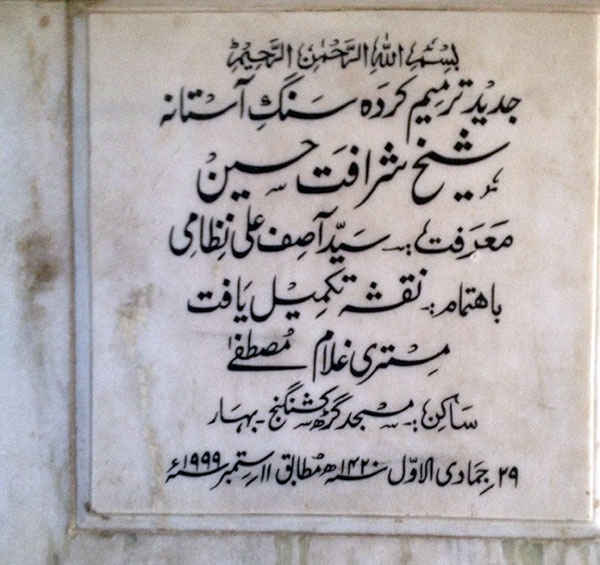 بِسْمِ اللهِ الرَّحْمٰنِ الرَّحِيْمِ
جدید ترمیم کردہ سنگِ آستانہ
شیخ شرافت حسین
معرفت:۔ سیّد آصف علی نظامی
باہتمام:۔ نقشہ تکمیل یافت
مستری غلام مصطفےٰ
ساکن:۔ مسجد گڑھ کشنگنج۔ بہار
۲۹ جمادی الاوّل سنہ ۱۴۲۰ھ مطابق ۱۱ ستمبر سنہ ۱۹۹۹ء